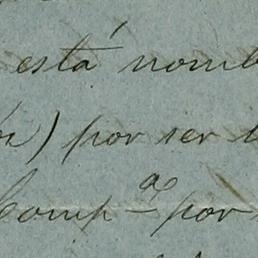 está nomb
) por ser
Comp.ª por